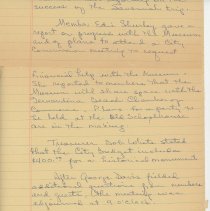 success by the
Member Ed Shurley gave a
report on progress with the Museum
and of plans to attend a City
Commission meeting to request
financial help with the Museum
He reported to members that the
Museum will share space with the
Fernandina Beach Chamber of
Commerce. Plans for a
be held at the Old Schoolhouse
are in the making
Treasurer Bob stated
that the City Budget includes
$400.00 for a historical monument
After George Davis fielded
additional questions from members
and guests the meeting was
adjourned at 9 o'clock.